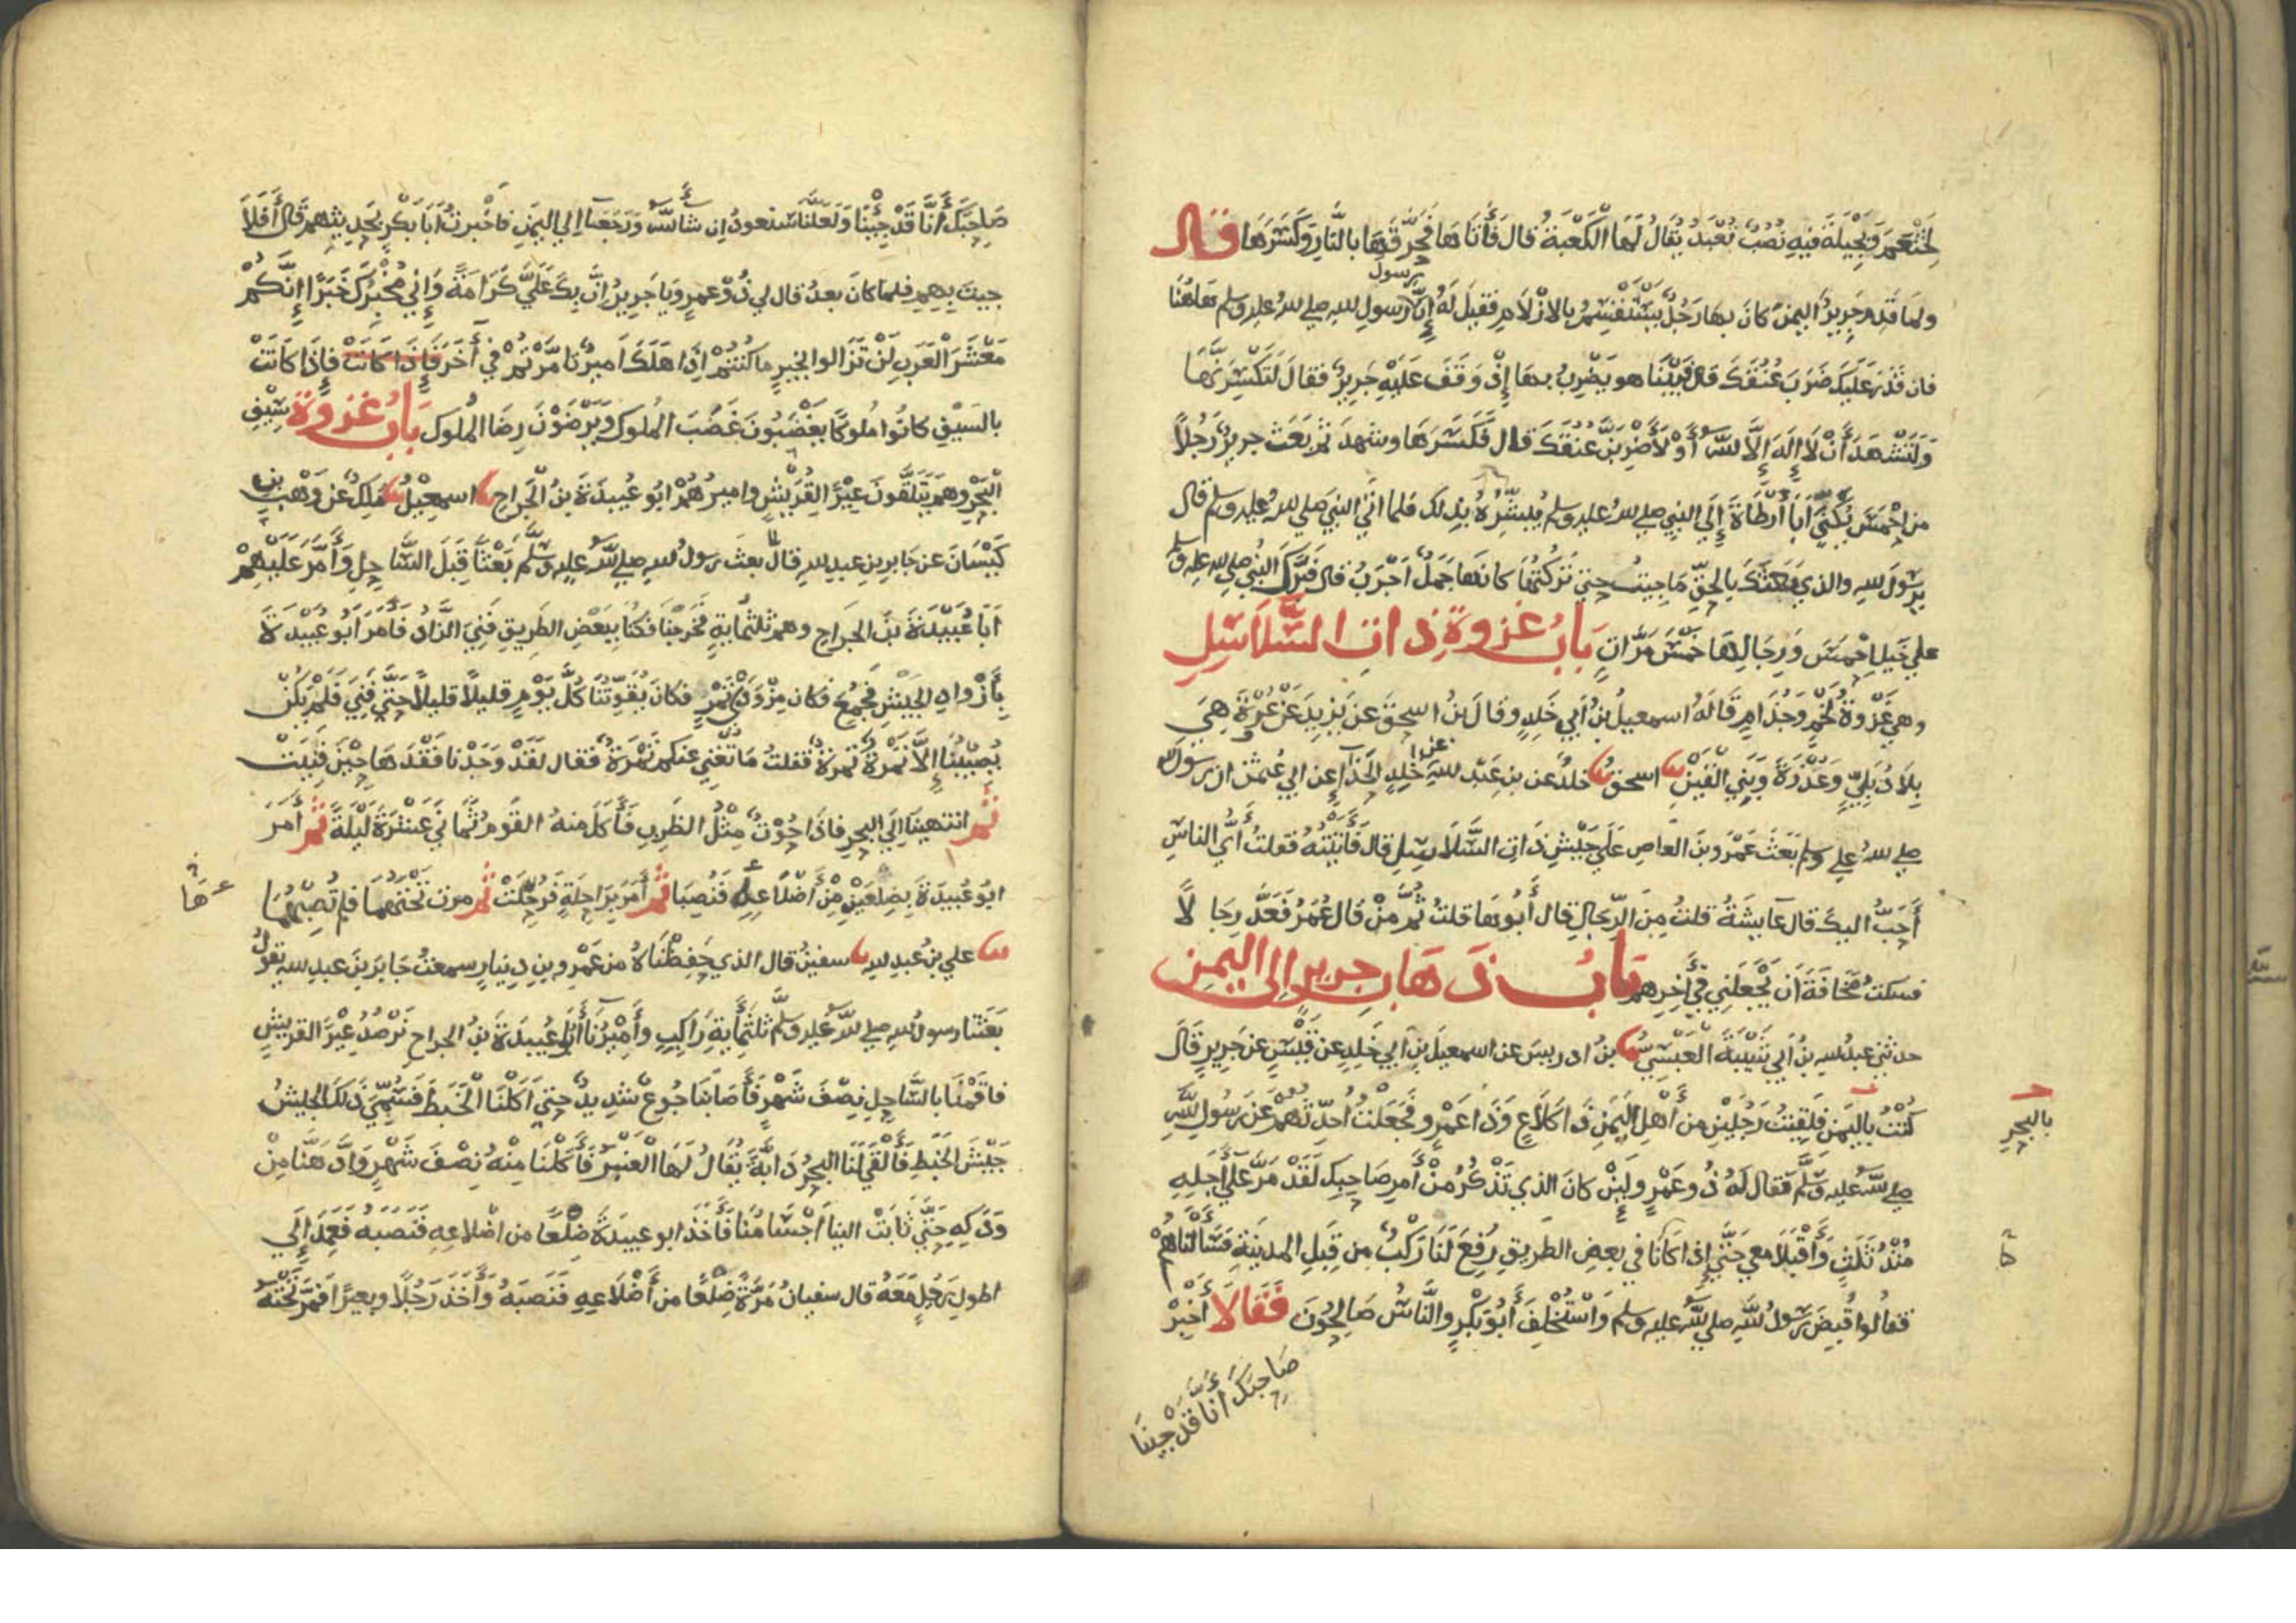 لِخَثْعَمَ وَبَجِيْلَةَ فِيهِ نُصُبٌ تُعْبَدُ يُقَالُ لَهَا الْكَعْبَةُ قال فَأَتَاهَا فَحَرَّقَهَا بالنَّارِ وَكَسَرَهَا قال
ولمّا قَدِمَ جَرِيرٌ اليَمَنَ كانَ بها رَجُلٌ يَسْتَقْسِمُ بِالأزْلَامِ فقيلَ لَهُ إِنَّ رَسُولَ رسولِ للهِ صلى للهُ عليه وسلم هَاهُنَا
فان قَدَرَ عَلَيْكَ ضَرَبَ عُنُقَكَ قال فَبَيْنَا هو يَضْرِبُ بها إِذْ وَقَفَ عَلَيْهِ جَرِيرٌ فقالَ لَتَكْسِرَنَّهَا
وَلَتَشْهَدَ أَنْ لَا إلَهَ إِلَّا للهُ أَوْ لَأَضْرِبَنَّ عُنُقَكَ قال فَكَسَرَهَا وشهدَ ثم بَعَثَ جريرٌ رَجُلاً
من احْمَسَ يُكْنَى أَبَا أَرْطَاةَ إِلَى النبي صلى للهُ عليه وسلم يُبَشِّرُهُ بذلك فلما اتى النبيَ صلى للهُ عليه وسلم قال
يَرَسُولَ للهِ والذي بَعَثَكَ بِالحَقِّ مَا جِيتُ حتى تَرَكْتُهَا كانها جَمَلٌ أَجْرَبُ قال فَبَرَّكَ النبيُ صلى لله عليه وسلم
على خَيْلِ احْمَسَ وَرِجَالِهَا خَمْسَ مَرَّاتٍ بَابُ غزوةِ ذاتِ السَّلَاسِلِ
وهي غَزْوَةُ لَخْمٍ وَجُذَامٍ قَالَهُ اسمعيلُ بنُ أَبِي خَلِدٍ وقالَ بنُ اسحقَ عن يزيدَ عَنْ عُرْوَةَ هِيَ
بِلَادُ بَلِيٍّ وَعُذْرَةَ وَبَنِي الْقَيْنِ اسحقُ خلدُ عن بنِ عَبْدِ للهِ عن خلدٍ الحَذَّآءِ عن ابي عثمنَ ان رَسُولَ
صلى للهُ عليه وسلم بَعَثَ عَمْرَو بنَ العَاصِ عَلَى جَيْشِ ذَاتِ السَّلَاسِلِ قال فَأَتَيْتُهُ فقلتُ أَيُّ الناسِ
أَحَبُّ اليكَ قال عَايِشَةُ قلتُ مِنَ الرِّجَالِ قال أَبُوهَا قلتُ ثُمَّ مَنْ قال عُمَرُ فَعَدَّ رِجَا لًا
فسكتُ مَخَافَةَ أَن يَجْعَلَنِي فِي أَخِرِهِم بَابُ ذَهَابِ جريرٍ الى اليمنِ
حدثني عبدُ للهِ بنُ ابي شَيْبَةَ العَبْسِيُّ بنُ ادريسَ عن اسمعيلَ بنِ ابي خَلِدٍ عن قَيْسٍ عن جَرِيرٍ قَالَ
كُنْتُ بِاليَمَنِ فلقيتُ رَجُلَيْنِ من أَهْلِ اليَمَنِ ذَا كَلَاعٍ وَذَا عَمْرٍو فَجَعَلْتُ أُحَدِّثُهُمْ عَنْ رَسُولِ للهِ
بالبحرِ
صلى للهُ عليه وسَلَّمَ فقال لَهُ ذُو عَمْرٍو لَيِنْ كانَ الذي تَذْكُرُ مِنْ أَمرِ صَاحِبِكَ لَقَدْ مَرَّ عَلَى أَجَلِهِ
مُنْذُ ثَلَثٍ وَأَقْبَلَا معي حَتَّى إِذَا كَانَا في بعضِ الطَّرِيقِ رُفِعَ لَنَا رَكْبٌ من قِبَلِ المدينةِ فَسَأَلْنَاهُمْ
كُنَّا
فقالُوا قُبِضَ رَسُولُ للهِ صلى للهُ عليه وسلم وَاسْتُخْلِفَ أَبُو بَكْرٍ والنَّاسُ صَالِحُونَ فَقَالَا أَخْبِرْ
صَاحِبَكَ أَنَّا قَدْ جِيْنَا
صَاحِبَكَ أَنَّا قَدْ جِئْنَا وَلَعَلَّنَا سَنعودُ إن شآ للهُ وَرَجَعَا إلى اليَمَنِ فاخْبرتُ أبَا بَكْرٍ بحَدِيثِهم قَالَ أَفَلَا
جيتَ بِهِمْ فلما كانَ بعدُ قال لي ذُو عمرٍو يَا جَرِيرُ إِنَّ بِكَ عَلَيَّ كَرَامَةً وَإِنِّي مُخْبِرُكَ خَبَرًا إِنَّكُمْ
مَعْشَرَ العَرَبِ لَنْ تَزَالوا بِخَيرٍ ما كُنتُمْ إِذَا هَلَكَ أَميرٌ تَأَمَّرْتُمْ في أَخَرَ فَإِذَا كَانَتْ فَإِذَا كَانَتْ
بالسَيْفِ كانُوا مُلُوكًا يَغْضَبُونَ غَضَبَ المُلوكِ وَيَرْضَوْنَ رِضَا المُلُوكِ بَابُ غزوةِ سِيْفِ
البَحْرِ وهم يَتَلَقَّونَ عِيْرًا لِقُرَيْشٍ واميرُهُمْ ابُو عُبيدَةَ بنُ الجَرّاحِ اسمعيلُ مَلِكٌ عن وَهْبِ بن
كَيْسَانَ عن جَابِرِ بنِ عبدِ للهِ قال بعثَ رسولُ للهِ صلى للهُ عليه وسلَّمَ بَعْثًا قِبَلَ السَّاحِلِ وَأَمَّرَ عَلَيْهِمْ
أَبَا عُبَيْدَةَ بنَ الجَرَّاحِ وهم ثلثمايةٍ فَخرجنَا فَكُنَّا بِبَعْضِ الطَرِيقِ فَنِيَ الزَّادُ فَأَمَرَ أبُو عُبَيْدَةَ
بِأَزْوادِ الجَيْشِ فَجُمِعَ فكان مِزْوَدَيْ تَمْرٍ فكانَ يُقَوِّتُنَا كُلَّ يَوْمٍ قليلًا قليلًا حَتَّى فَنِيَ فَلَمْ يَكُنْ
يُصِيبُنَا إِلَّا تَمْرَةٌ تَمرَةٌ فقلتُ مَا تُغْنِي عنكم تَمْرَةٌ فقال لَقَدْ وَجَدْنا فَقْدَهَا حِيْنَ فَنِيَتْ
ثُمَّ انتهينَا إِلَى البحرِ فاذَا حُوْتٌ مِثْلُ الظَرِبِ فَأَكَلَ منهُ القَوْمُ ثَمَانِي عَشْرَةَ لَيْلَةً ثُمَّ أَمَرَ
ابُو عُبَيْدَةَ بِضِلَعَيْنِ مِنْ أَضْلَاعِهِ فَنُصِبَا ثُمَّ أَمَرَ بِرَاحِلَةٍ فَرُحِلَتْ ثُمَّ مرت تَحْتَهُمَا فلم تُصِبْهُمَا
علي بنُ عبدِ للهِ سفينُ قال الذي حَفِظْنَاهُ من عَمْرِو بنِ دينارٍ سمعتُ جَابِرَ بنَ عبدِ للهِ يقولُ
بَعَثَنَا رسولُ للهِ صلى للهُ عليه وسلَّمَ ثَلثَمِايةِ رَاكِبٍ وأَمِيْرُنَا أَبُو عُبيدَةَ بنُ الجراحِ نَرْصُدُ عِيْرَ القُريشٍ
فاقَمْنَا بالسَّاحِلِ نِصْفَ شَهْرٍ فَأَصَابَنَا جُوعٌ شَدِيدٌ حتى اَكَلْنَا الْخَبَطَ فَسُمِّيَ ذَلِكَ الجيشُ
جَيْشَ الخَبَطِ فَأَلْقَى لَنَا البحرُ دَابَّةً يُقَالُ لَهَا الْعَنْبَرُ فَأَكَلْنَا مِنْهُ نِصْفَ شَهْرٍ وَادَّهَنَّا مِنْ
وَدَكِهِ حَتَّى ثَابَتْ الينَا أَجْسَامُنَا فَأَخَذَ ابو عبيدَةَ ضِلْعًا من اضْلاعِهِ فَنَصَبَهُ فَعَمِدَ إِلَى
اطولِ رَجُلٍ مَعَهُ قال سفيانُ مَرَّةً ضِلْعًا من أَضْلَاعِهِ فَنَصَبَهُ وَأَخَذَ رَجُلًا وبعيرًا فَمَرَّ تَحْتَهُ